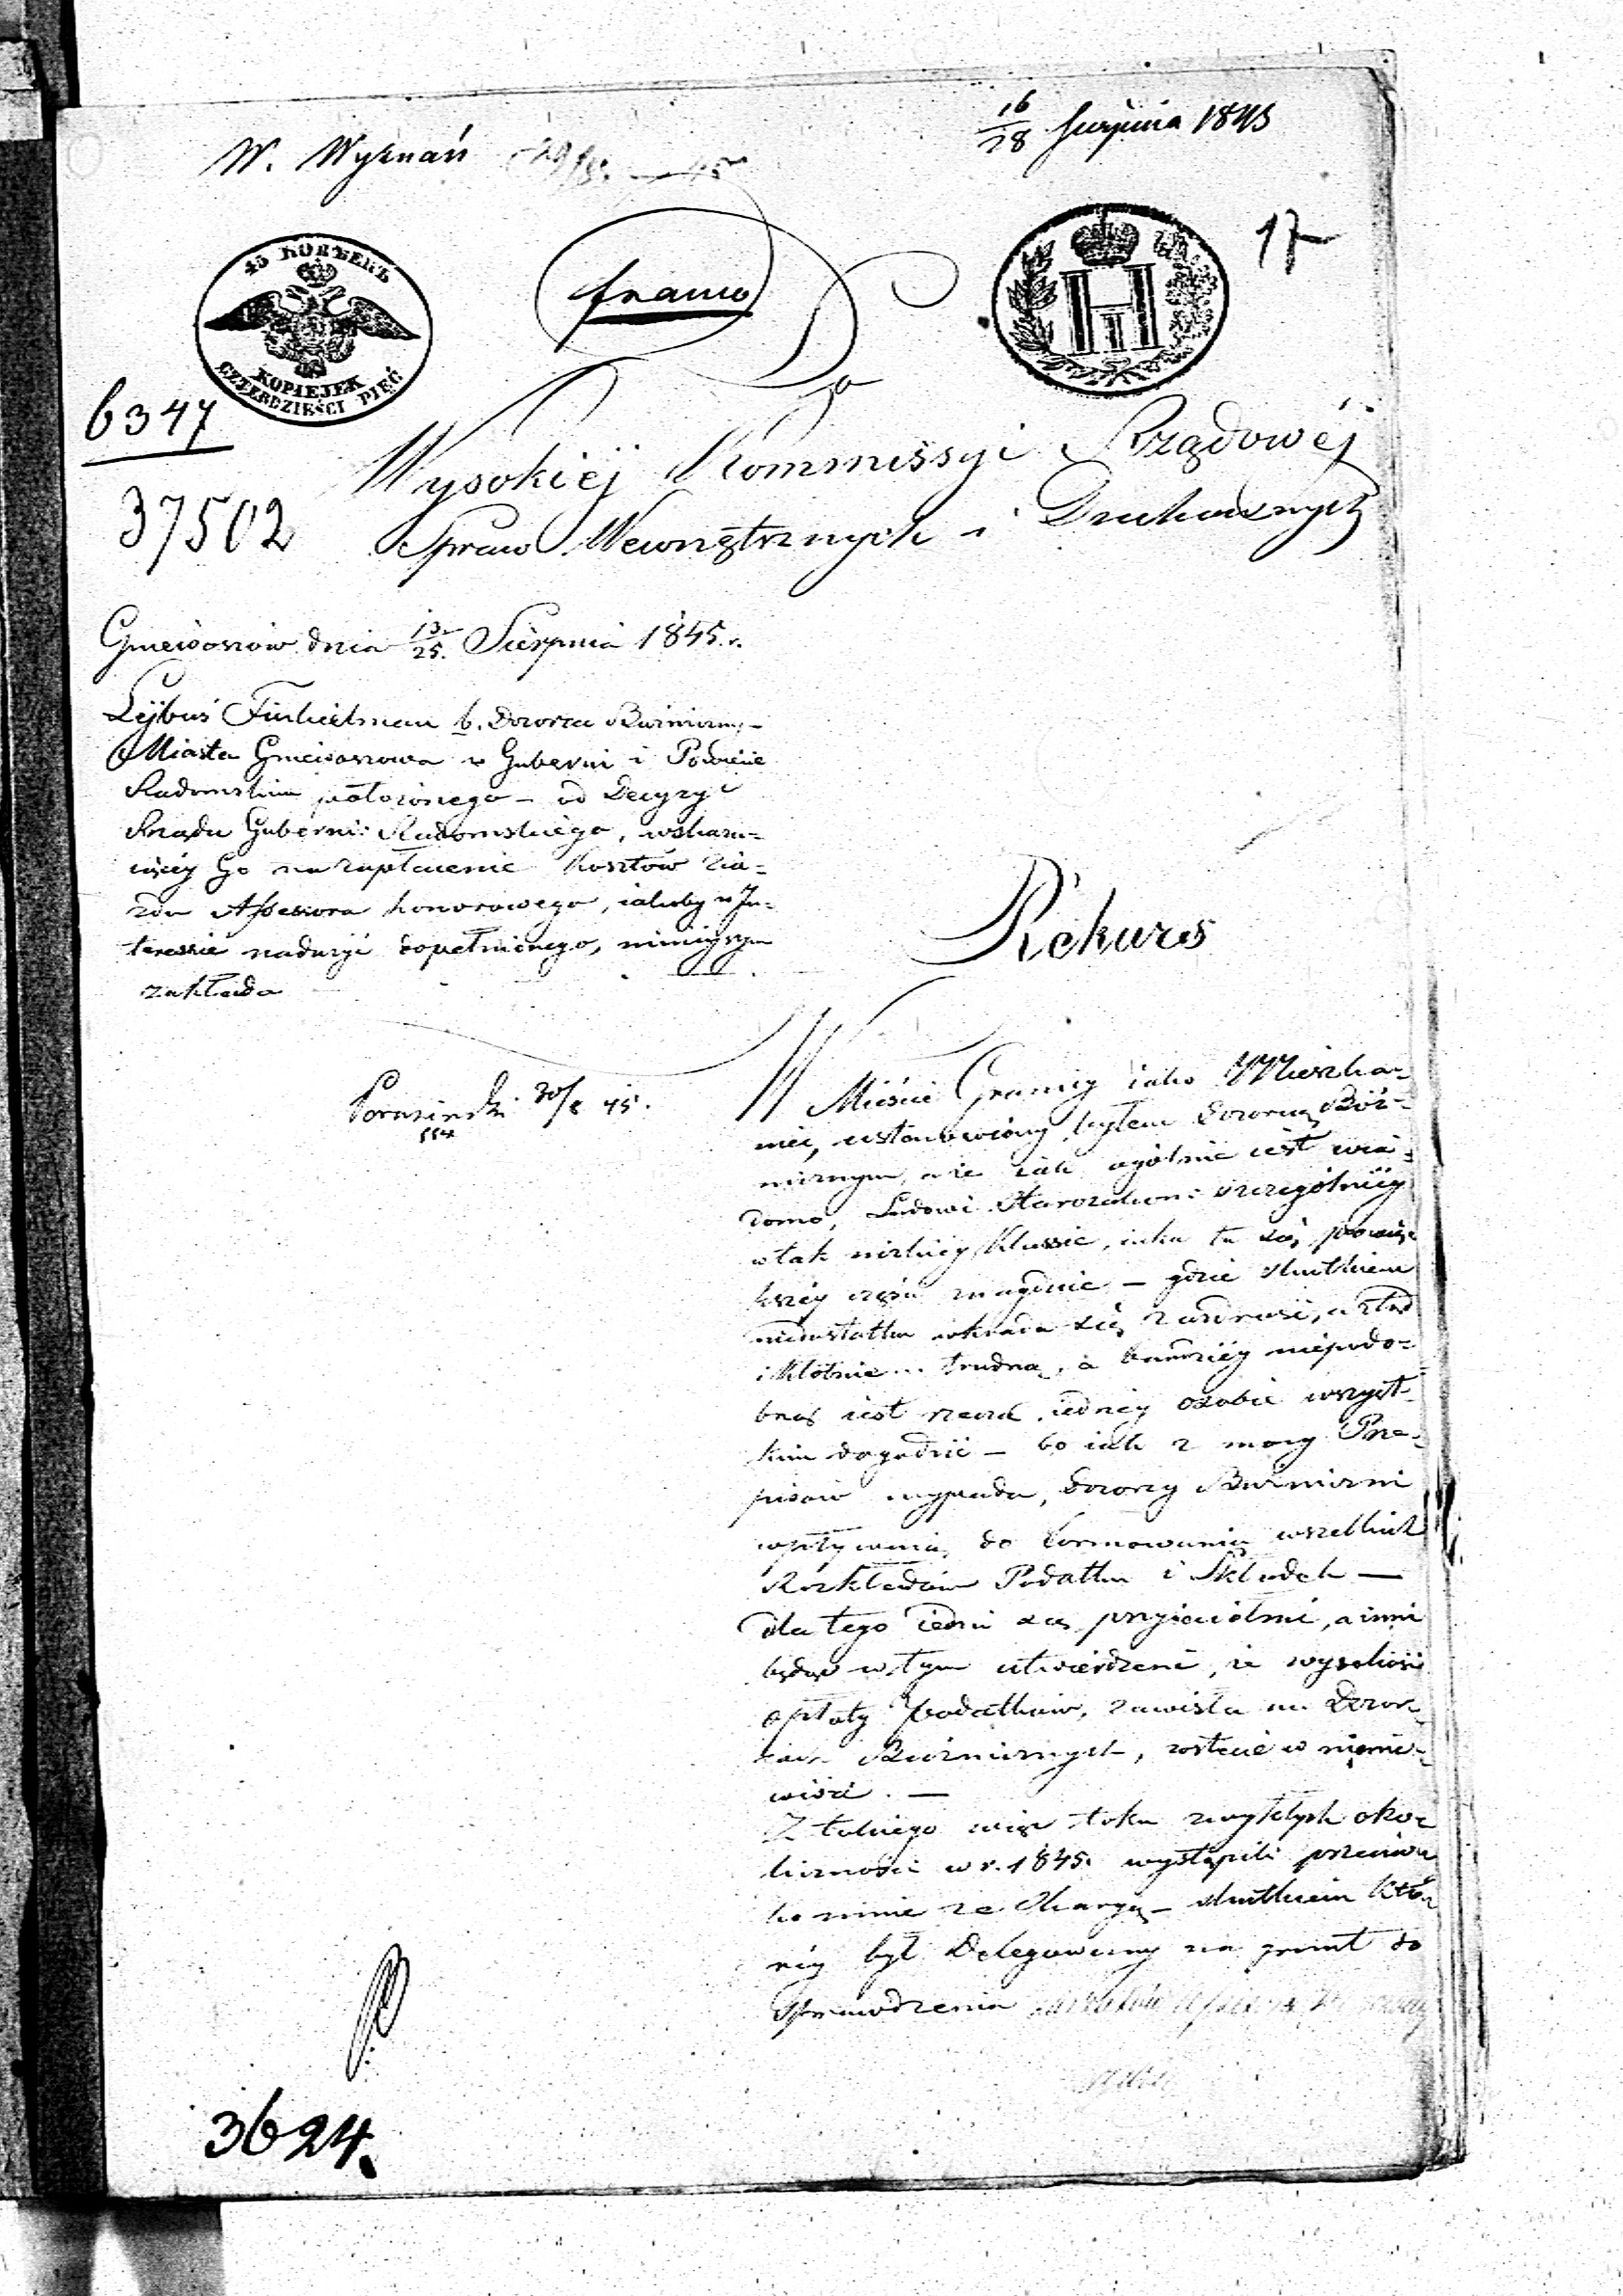 16/28 Sierpnia 1845
W. Wyznań 29/8 45
17
45 КОПѢЕКЪ
KOPIEJEK
CZTERDZIEŚCI PIĘĆ
franco
H
Do
6347
Wysokiéj Kommissyi Rządowéj
37502
Spraw Wewnętrznych i Duchownych
Gniewoszów dnia 13/25 Sierpnia 1845 r.
Lejbuś b. Dozorca Bużniczny
Miasta Gniewoszowa w Guberni i Powiecie
Radomskim położonego – od Decyzyi
Rządu Guberni: Radomskiego, wskazu=
iącéy Go na zapłacenie kosztów zia=
zdu Assessora honorowego, iakoby w In=
teressie nadużyć dopełnionego, ninieyszym
zakłada
Rekurs
30/8 45.
W Mieście Granicy iako Mieszka=
niec, ustanowiony byłem Dozorcą Boż=
nicznym, a że iak ogólnie iest wia=
domo, Ludowi Starozakon: szczególniéy
w tak nizkiéy Klassie, iaka tu się po więk
kszéy części znayduie – gdzie skutkiem
niedostatku wkrada się zazdrość, a ztąd
i kłótnie... trudną, a bardziéy niepodo=
bną iest rzeczą iednéy osobie wszyst=
kim dogodzić – bo iak z mocy Prze=
pisów wypada, Dozorcy Bużniczni
wpływaią do formowania wszelkich
Rozkładów Podatku i Składek —
dla tego iedni są przyiaciółmi, a inni
będąc w tym utwierdzeni, że wysokość
opłaty podatków, zawisła na Dozor=
cach Bużnicznych, zostaie w niena=
wiści. —
Z takiego więc toku zwykłych oko=
liczności w r. 1845 wystąpili przeciw
ko mnie ze skargą – skutkiem któ=
réy był Delegowany na grunt do
Sprawdzenia
3624.